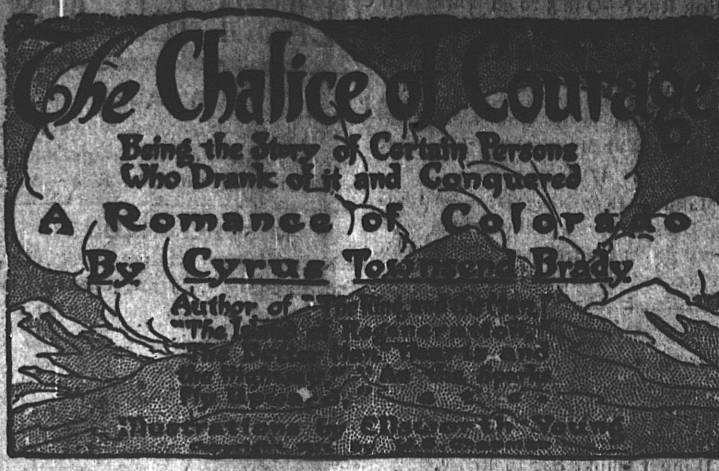 The Chalice of Courage
Being the Story of Certain Persons
Who Drank of it and Conquered
A Romance of Colorado
By Cyrus Townsend Brady
Author of "The
"The
The Better Man,
As The Sparks
Fly Upward
Illustrations by Ellsworth Young